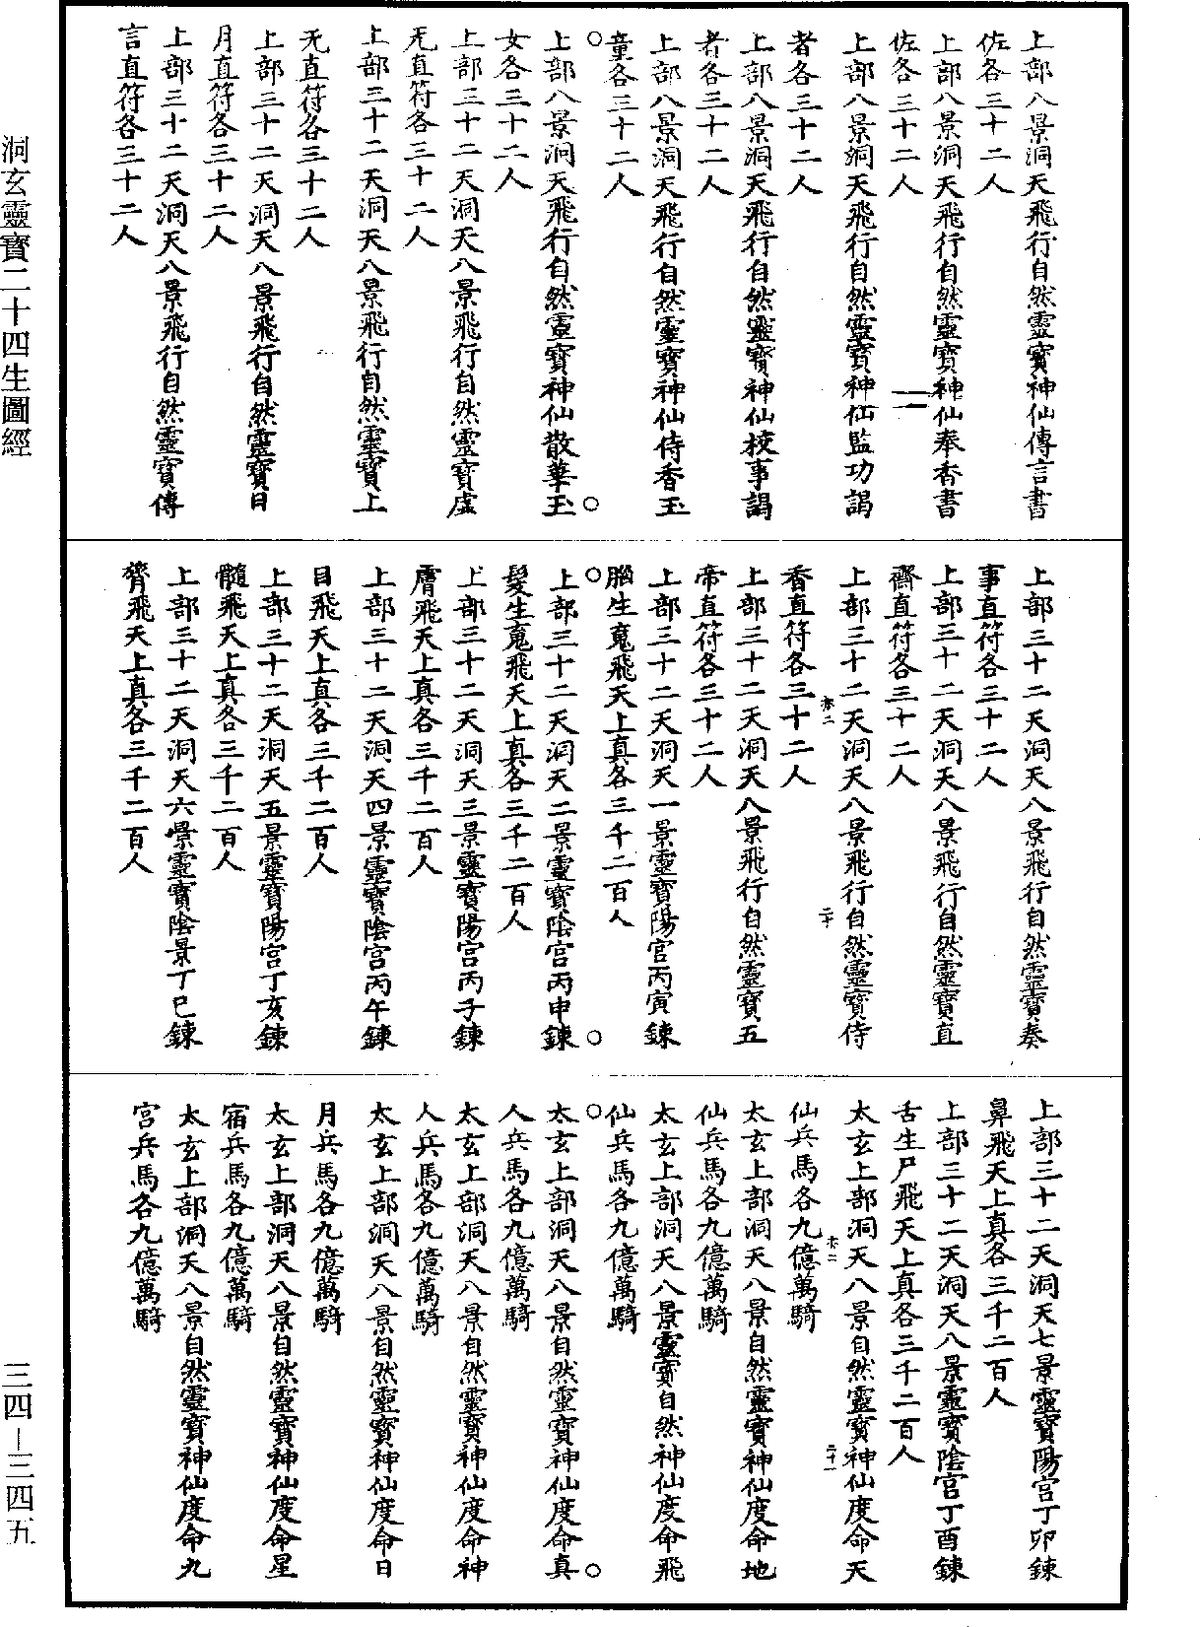 上部八景洞天飛行自然靈寶神仙傳言書
佐各三十二人
上部八景洞天飛行自然靈寶神仙奉香書
佐各三十二人
上部八景洞天飛行自然靈寶神仙監功謁
者各三十二人
上部八景洞天飛行自然靈寶神仙校事謁
者各三十二人
上部八景洞天飛行自然靈寶神仙侍香玉
童各三十二人
上部八景洞天飛行自然靈寶神仙散華玉
女各三十二人
上部三十二天洞天八景飛行自然靈寶虛
无直符各三十二人
上部三十二天洞天八景飛行自然靈寶上
无直符各三十二人
上部三十二天洞天八景飛行自然靈寶日
月直符各三十二人
上部三十二天洞天八景飛行自然靈寶傳
言直符各三十二人
上部三十二天洞天八景飛行自然靈寶奏
事直符各三十二人
上部三十二天洞天八景飛行自然靈寶直
齋直符各三十二人
上部三十二天洞天八景飛行自然靈寶侍
香直符各三十二人
上部三十二天洞天八景飛行自然靈寶五
帝直符各三十二人
上部三十二天洞天一景靈寶陽宮丙寅鍊
腦生䰟飛天上真各三千二百人
上部三十二天洞天二景靈寶陰宮丙申鍊
髮生䰟飛天上真各三千二百人
上部三十二天洞天三景靈寶陽宮丙子鍊
膚飛天上真各三千二百人
上部三十二天洞天四景靈寶陰宮丙午鍊
目飛天上真各三千二百人
上部三十二天洞天五景靈寶陽宮丁亥鍊
髓飛天上真各三千二百人
上部三十二天洞天六景靈寶陰景丁巳鍊
膂飛天上真各三千二百人
上部三十二天洞天七景靈寶陽宮丁卯鍊
鼻飛天上真各三千二百人
上部三十二天洞天八景靈寶陰宮丁酉鍊
舌生尸飛天上真各三千二百人
太玄上部洞天八景自然靈寶神仙度命天
仙兵馬各九億萬騎
太玄上部洞天八景自然靈寶神仙度命地
仙兵馬各九億萬騎
太玄上部洞天八景靈寶自然神仙度命飛
仙兵馬各九億萬騎
太玄上部洞天八景自然靈寶神仙度命真
人兵馬各九億萬騎
太玄上部洞天八景自然靈寶神仙度命神
人兵馬各九億萬騎
太玄上部洞天八景自然靈寶神仙度命日
月兵馬各九億萬騎
太玄上部洞天八景自然靈寶神仙度命星
宿兵馬各九億萬騎
太玄上部洞天八景自然靈寶神仙度命九
宮兵馬各九億萬騎
洞玄靈寶二十四生圖經
三四—三四五